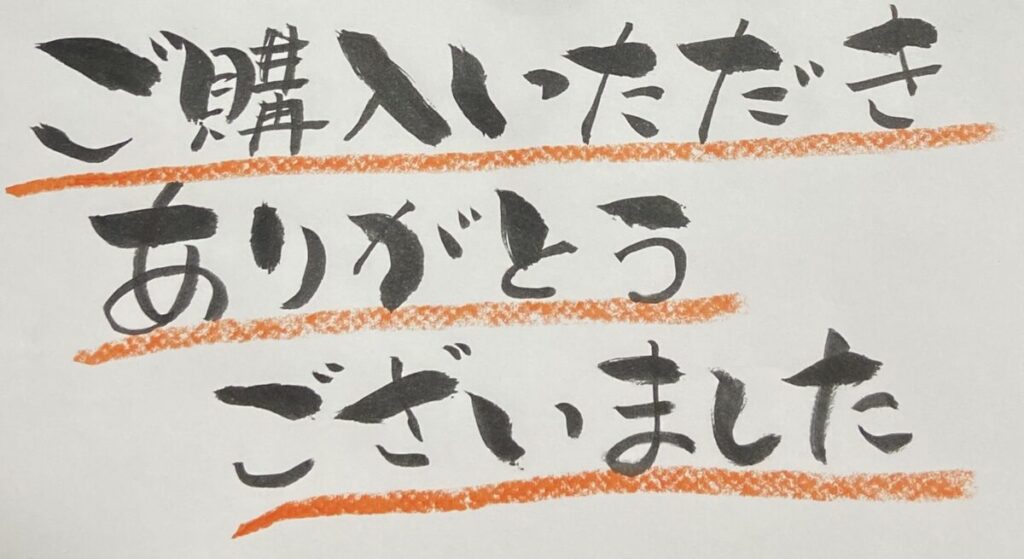 ご購入いただき
ありがとう
ございました